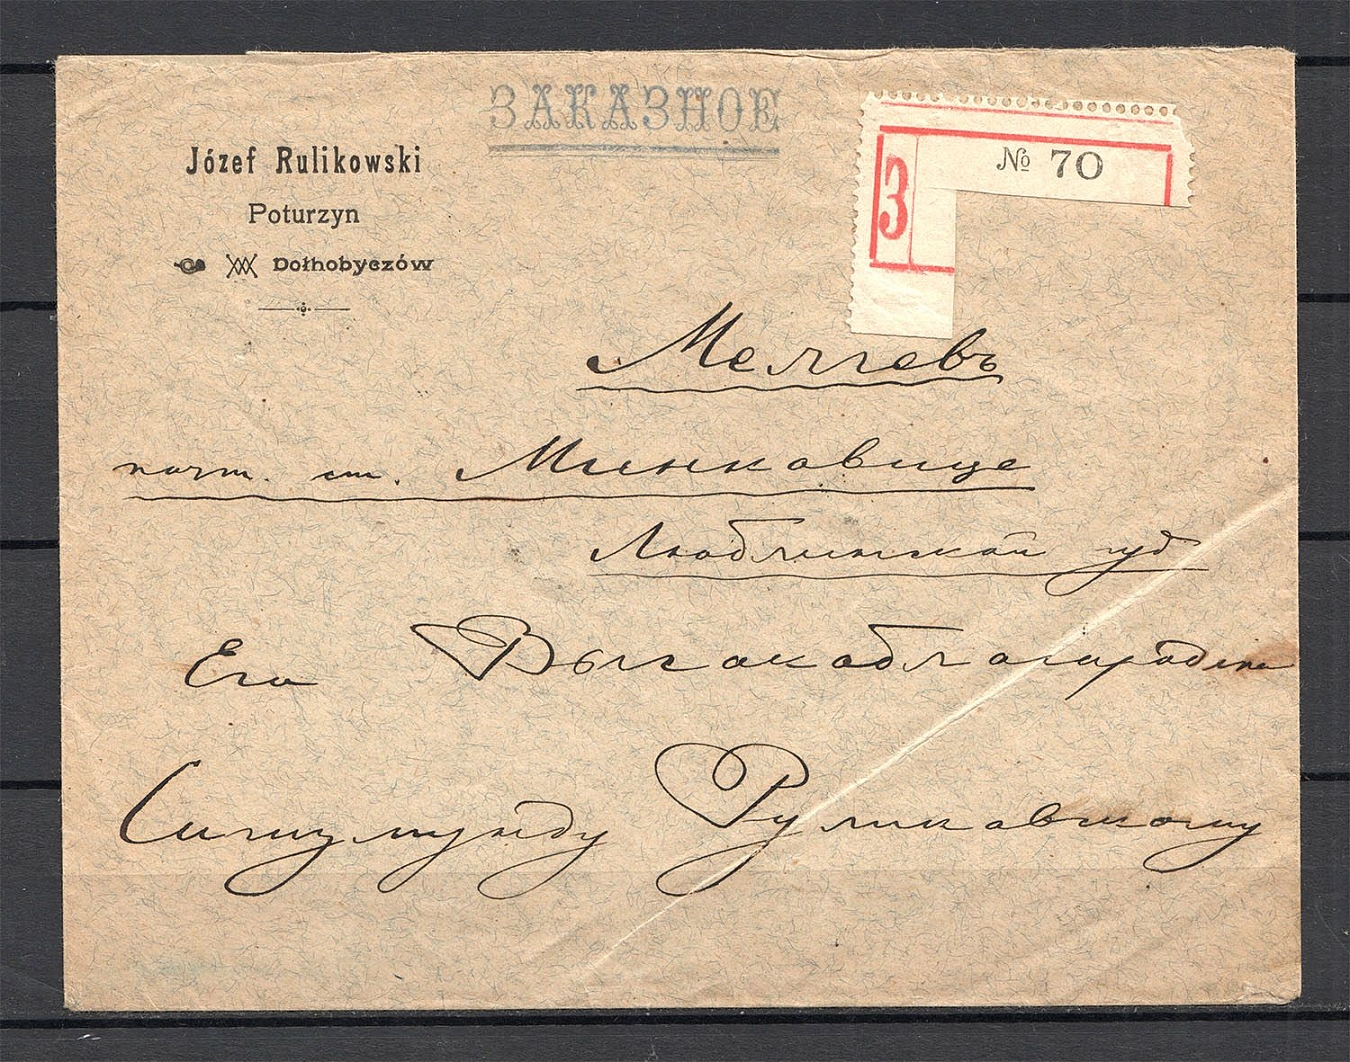 ЗАКАЗНОЕ
Józef Rulikowski
Poturzyn
Dołhobyczów
№ 70
З
Мелгевъ
почт. ст. Минковице
Люблинской губ
Его Высокоблагородию
Сигизмунду Руликовскому